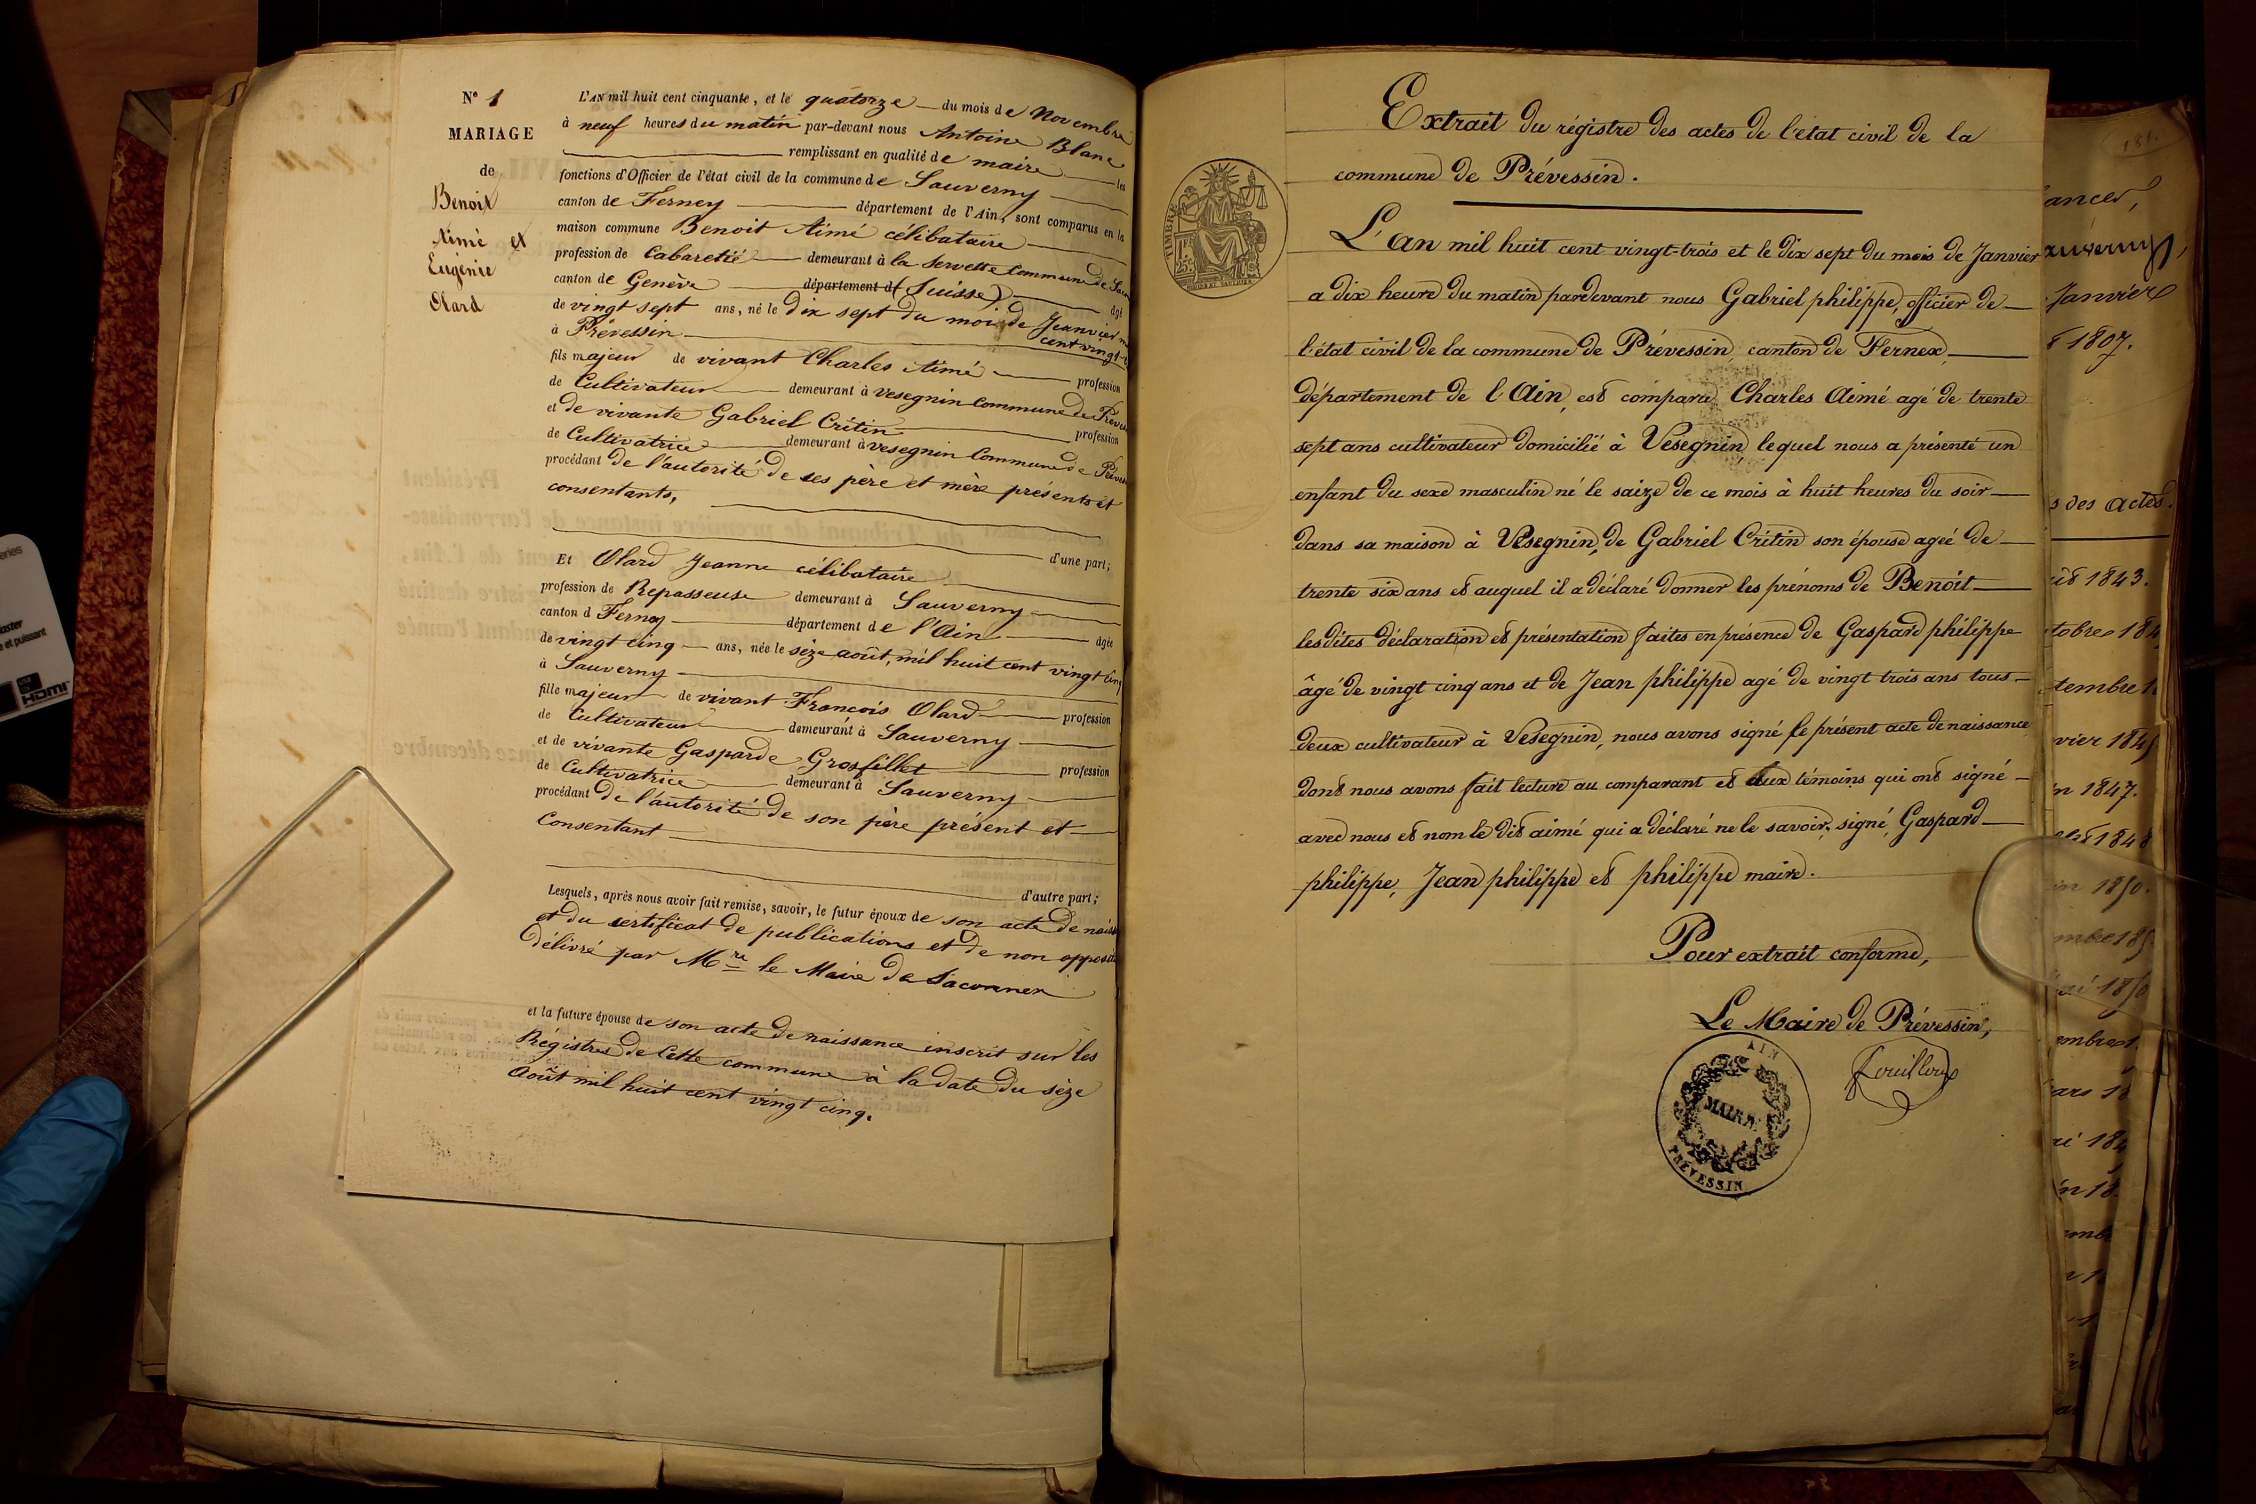 N° 1
MARIAGE
de
Benoit
Aimé et
Eugénie
Olard
L'AN mil huit cent cinquante, et le quatorze du mois de Novembre
à neuf heures du matin par-devant nous Antoine Blanc
remplissant en qualité de maire les
fonctions d'Officier de l'état civil de la commune de Sauverny
canton de Ferney département de l'Ain, sont comparus en la
maison commune Benoit Aimé célibataire
profession de Cabaretié demeurant à la Servette Commune de
canton de Genève département d (Suisse) âgé
de vingt sept ans, né le dix sept du mois de Jeanvier
cent vingt
à Prévessin
fils majeur de vivant Charles Aimé profession
de Cultivateur demeurant à Vesegnin Commune de
et de vivante Gabriel Critin profession
de Cultivatrice demeurant à vesegnin Commune de
procédant de l'autorité de ses père et mère présents et
consentants,
d'une part;
Et Olard Jeanne célibataire
profession de Repasseuse demeurant à Sauverny
canton d Ferney département de l'Ain âgée
de vingt cinq ans, née le sèze août, mil huit cent vingt cinq
à Sauverny
fille majeur de vivant François Olard profession
de Cultivateur demeurant à Sauverny
et de vivante Gasparde Grosfillet profession
de Cultivatrice demeurant à Sauverny
procédant de l'autorité de son père présent et
Consentant
d'autre part;
Lesquels, après nous avoir fait remise, savoir, le futur époux de son acte de
et du certificat de publications et de non
délivré par Mre le Maire de Saconnex
et la future épouse de son acte de naissance inscrit sur les
Régistres de Cette commune à la date du sèze
Août mil huit cent vingt cinq.
Extrait du régistre des actes de l'état civil de la
commune de Prévessin.
TIMBRE
L'an mil huit cent vingt-trois et le dix sept du mois de Janvier
a dix heure du matin pardevant nous Gabriel philippe, officier de
l'état civil de la commune de Prévessin, canton de Fernex,
département de l'Ain, est comparu Charles Aimé agé de trente
sept ans cultivateur domicilié à Vesegnin, lequel nous a présenté un
enfant du sexe masculin né le saize de ce mois à huit heures du soir
dans sa maison à Vesegnin, de Gabriel Critin son épouse ageé de
trente six ans et auquel il a déclaré donner les prénoms de Benoit
les dites déclaration et présentation faites en présence de Gaspard philippe
âgé de vingt cinq ans et de Jean philippe agé de vingt trois ans tous
deux cultivateur à Vesegnin, nous avons signé le présent acte de naissance
dont nous avons fait lecture au comparant et aux témoins qui ont signé
avec nous et nom le dit aimé qui a déclaré ne le savoir, signé, Gaspard
philippe, Jean philippe et philippe maire.
Pour extrait conforme,
Le Maire de Prévessin,
AIN
MAIRIE
PRÉVESSIN
Janvier
1807.
s des actes.
1843.
1847.
1850.
HDMI